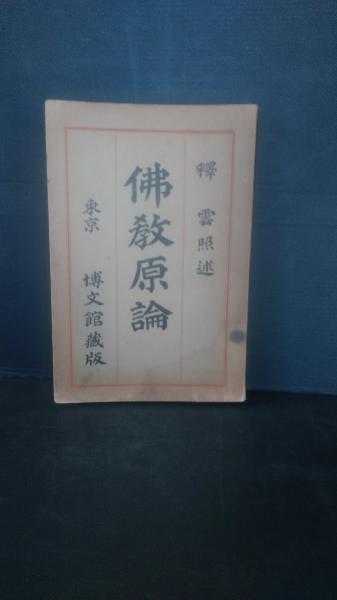 釋 雲照述
佛教原論
東京 博文館蔵版